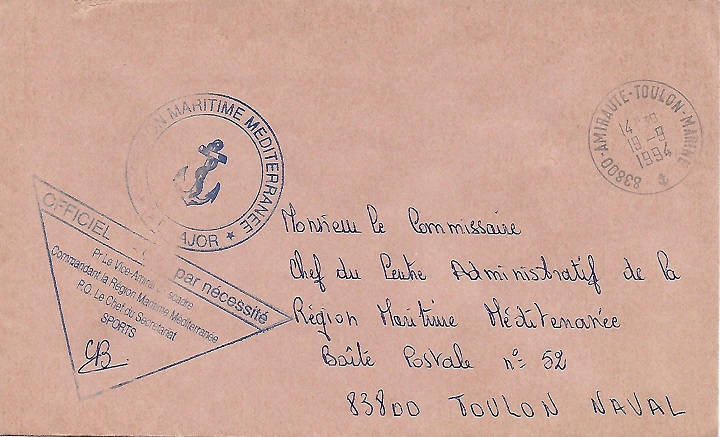 ON MARITIME MEDITERRANEE
★ AJOR
83800-AMIRAUTE-TOULON-MARINE
14 H
19 -9
1994
OFFICIEL par nécessité
Pr Le Vice-Amiral d'Escadre
Commandant la Région Maritime Méditerranée
P.O. Le Chef du Secrétariat
SPORTS
CB
Monsieur le Commissaire
Chef du Centre Administratif de la
Région Maritime Méditerranée
Boîte Postale n° 52
83800 TOULON NAVAL